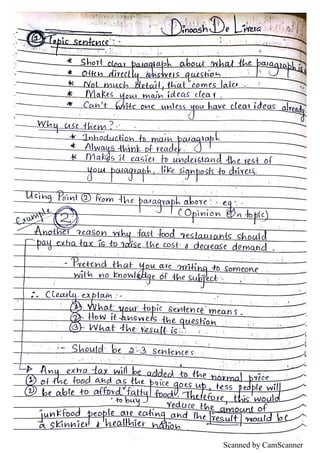 Dinoosh De Livera
① Topic sentence :-
* Short clear paragraph about what the paragraph is
* Often directly answers question
* Not much detail, that comes later
* Makes your main ideas clear.
* Can't write one unless you have clear ideas already
Why use them? :-
* Introduction to main paragraph
* Always think of reader.
* Makes it easier to understand the rest of
your paragraph, like signposts to drivers.
Using Point ② from the paragraph above :- eg :-
Example ② (Opinion on topic)
Another reason why fast food restaurants should
pay extra tax is to raise the cost & decrease demand.
- Pretend that you are writing to someone
with no knowledge of the subject.
∴ Clearly explain :-
① What your topic sentence means.
② How it answers the question
③ What the result is
:- Should be 2-3 sentences
Any extra tax will be added to the normal price
① of the food and as the price goes up, less people will
② be able to afford fatty food. Therefore, this would
to buy reduce the amount of
junkfood people are eating and the result would be
a skinnier & healthier nation
Scanned by CamScanner